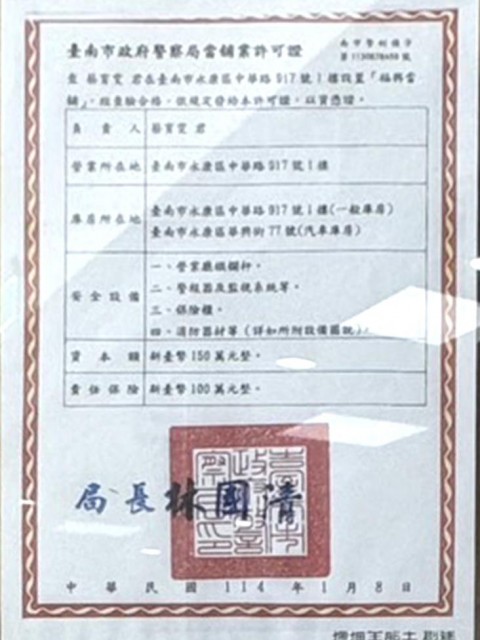 臺南市政府警察局當舖業許可證
南市警刑偵字
第1130878459號
查 蔡育雯 君在臺南市永康區中華路917號1樓設置「福興當
舖」，經查驗合格，依規定發給本許可證，以資憑證。
負責人 蔡育雯 君
營業所在地 臺南市永康區中華路917號1樓
庫房所在地 臺南市永康區中華路917號1樓(一般庫房)
臺南市永康區華興街77號(汽車庫房)
安全設備 一、營業廳鐵欄杆。
二、警報器及監視系統等。
三、保險櫃。
四、消防器材等（詳如所附設備圖說）
資本額 新臺幣150萬元整。
責任保險 新臺幣100萬元整。
局長林國清
中華民國114年1月8日